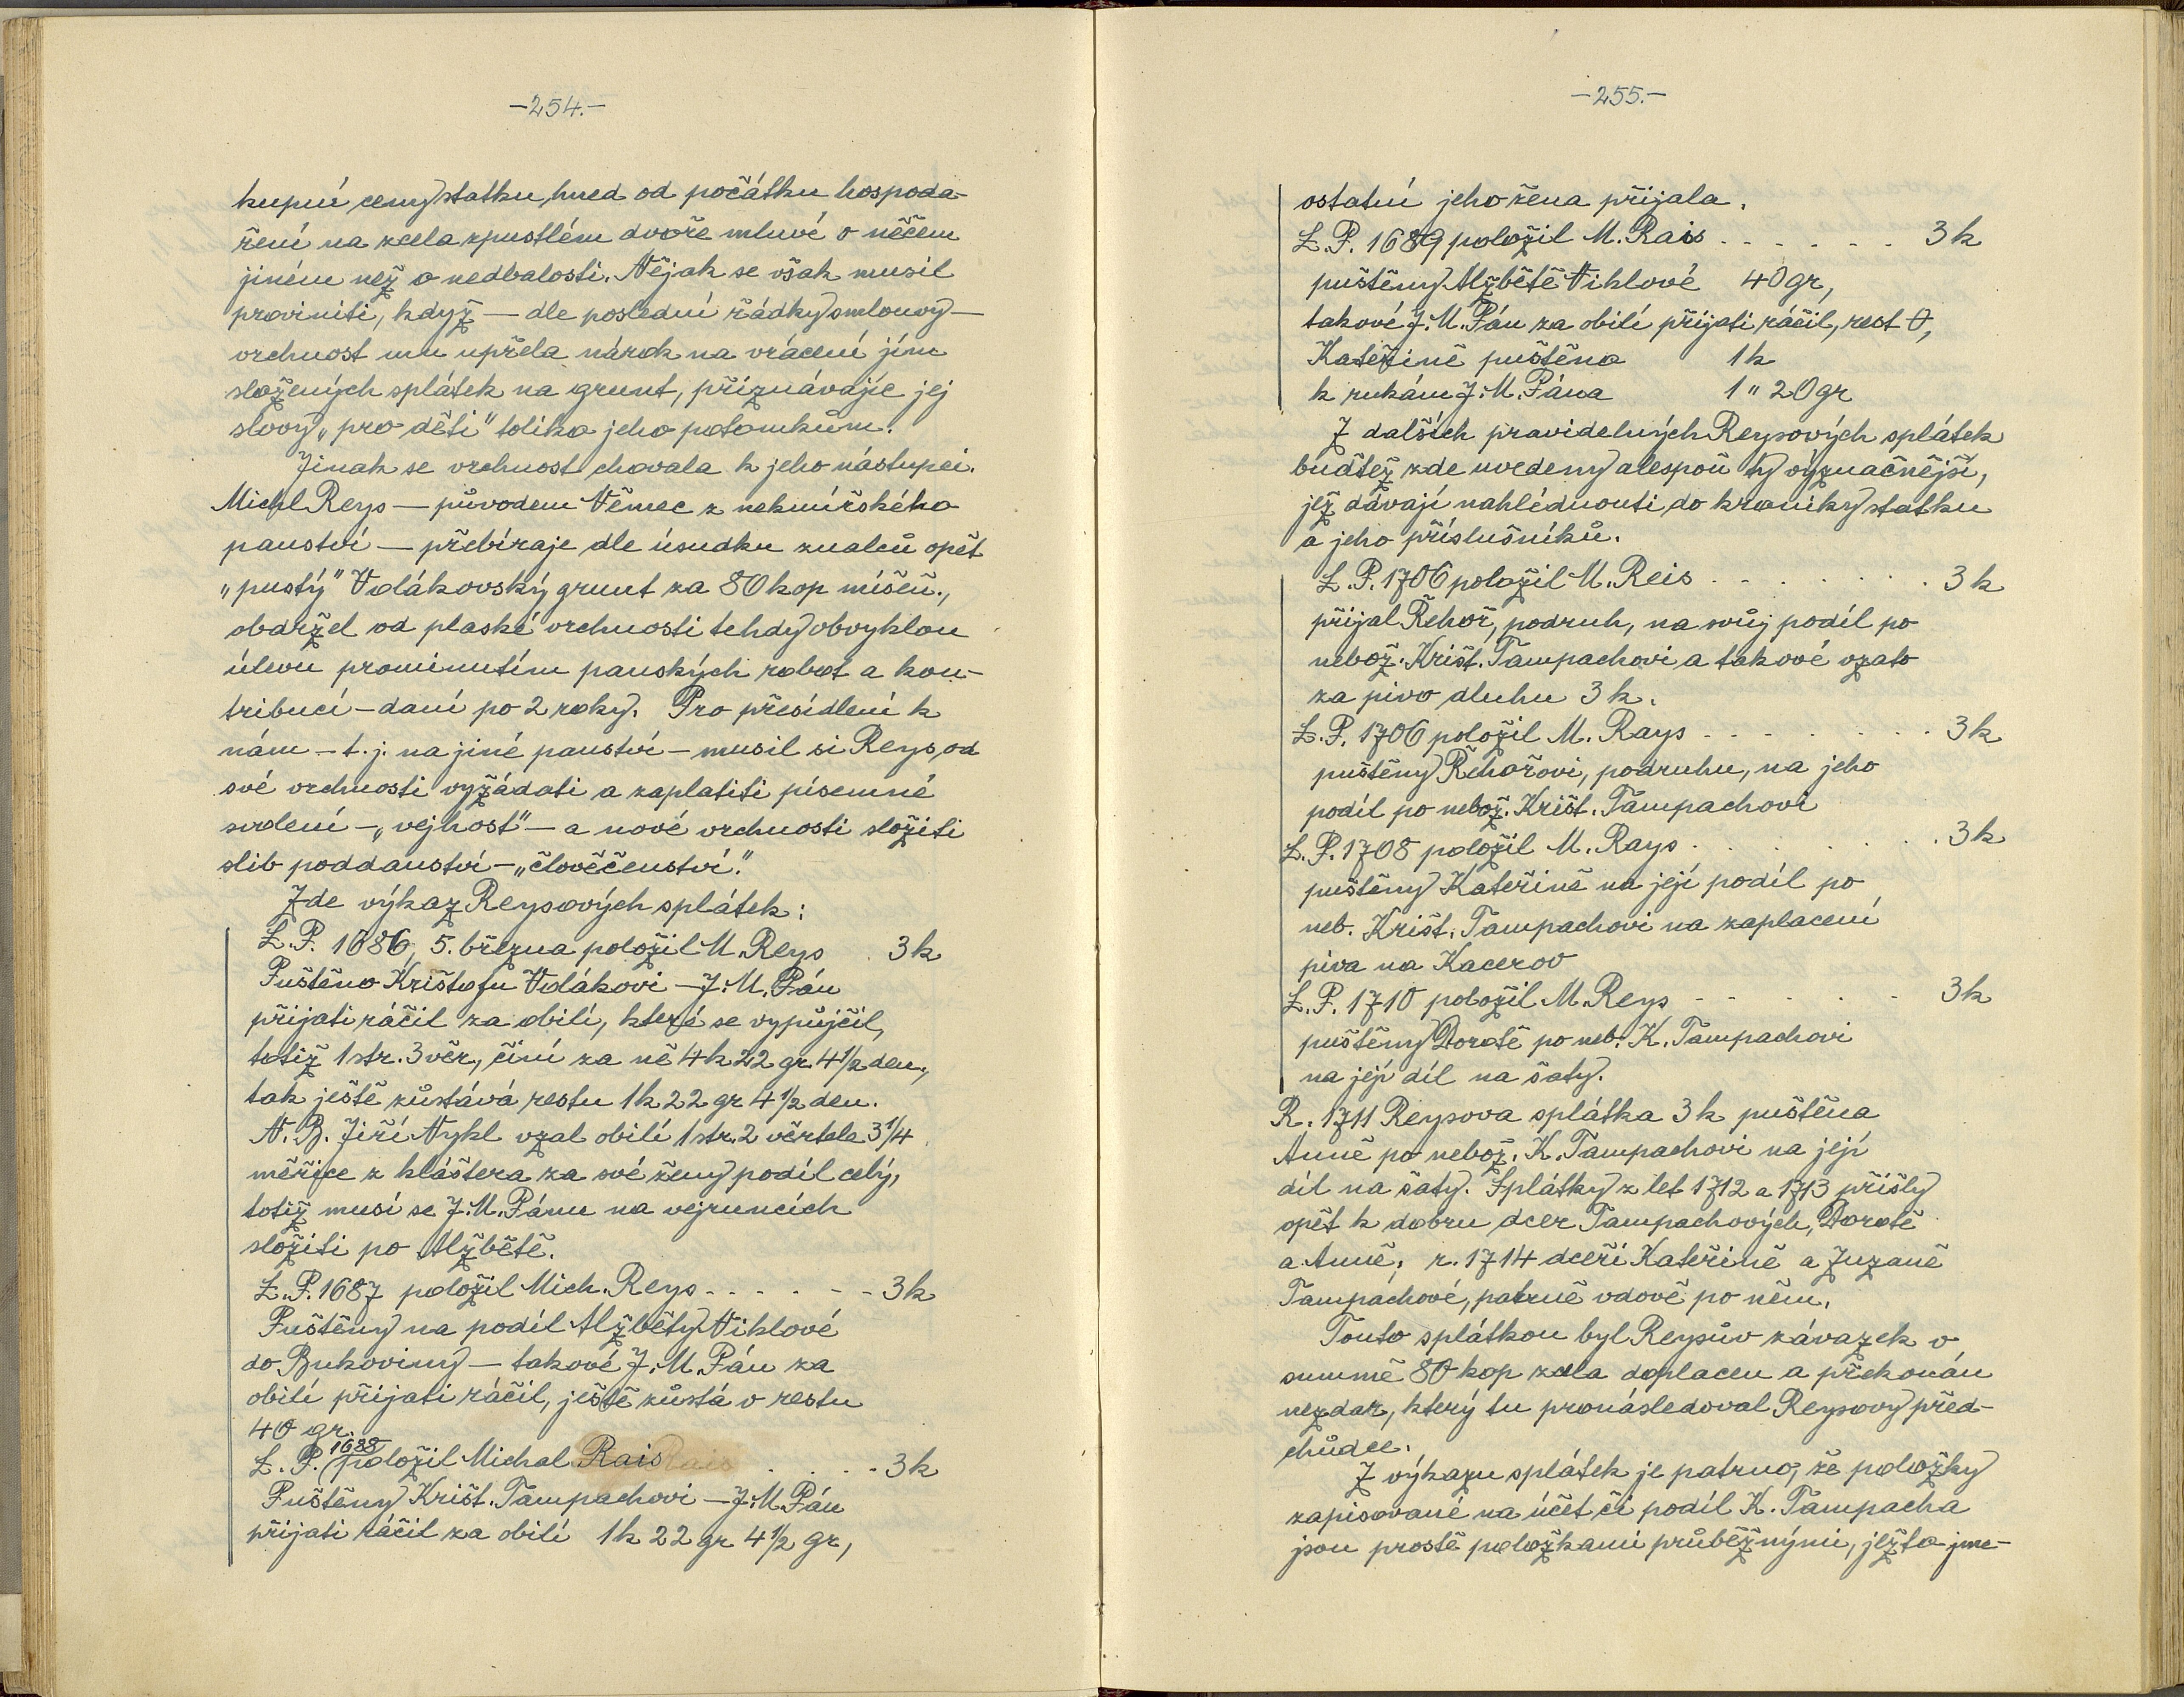 -254.-
kupní ceny statku, hned od počátku hospoda-
ření na zcela zpustlém dvoře mluví o něčem
jiném než o nedbalosti. Nějak se však musil
proviniti, když — dle poslední řádky smlouvy —
vrchnost mu upřela nárok na vrácení jím
složených splátek na grunt, přiznávajíc jej
slovy „pro děti" toliko jeho potomkům.
Jinak se vrchnost chovala k jeho nástupci.
Michl Reys — původem Němec z nekmířského
panství — přebíraje dle úsudku znalců opět
„pustý" Vidákovský grunt za 80 kop míšeň.,
obdržel od plaské vrchnosti tehdy obvyklou
úlevu prominutím panských robot a kon-
tribucí - daní po 2 roky. Pro přesídlení k
nám - t. j. na jiné panství - musil si Reys od
své vrchnosti vyžádati a zaplatiti písemné
svolení - „vejhost" - a nové vrchnosti složiti
slib poddanství - „člověčenství."
Zde výkaz Reysových splátek:
L. P. 1686, 5. března položil M. Reys . 3 k
Puštěno Krištofu Vidákovi — J. M. Pán
přijati ráčil za obilí, které se vypůjčil,
totiž 1 str. 3 věr., činí za ně 4 k 22 gr. 4 1/2 den.,
tak ještě zůstává restu 1 k 22 gr 4 1/2 den.
N. B. Jiří Nykl vzal obilí 1 str. 2 věrtele 3 1/4
měřice z kláštera za své ženy podíl celý,
totiž musí se J. M. Pánu na vejruncích
složiti po Alžbětě.
L. P. 1687 položil Mich. Reys - - - - - - 3 k
Puštěny na podíl Alžběty Niklové
do Bukoviny — takové J. M. Pán za
obilí přijati ráčil, ještě zůstá v restu
40 gr.
L. P. 1688 položil Michal Rais . . . - 3 k
Puštěny Krišt. Tampachovi — J. M. Pán
přijati ráčil za obilí 1 k 22 gr 4 1/2 gr,
-255.-
ostatní jeho žena přijala.
L. P. 1689 položil M. Rais - - - - - - 3 k
puštěny Alžbětě Niklové 40 gr,
takové J. M. Pán za obilí přijati ráčil, rest 0,
Kateřině puštěno 1 k
k rukám J. M. Pána 1 " 20 gr
Z dalších pravidelných Reysových splátek
buďtež zde uvedeny alespoň ty význačnější,
jež dávají nahlédnouti do kroniky statku
a jeho příslušníků.
L. P. 1706 položil M. Reis - - - - - - 3 k
přijal Řehoř, podruh, na svůj podíl po
nebož. Krišt. Tampachovi a takové vzato
za pivo dluhu 3 k.
L. P. 1706 položil M. Rays - - - - - - 3 k
puštěny Řehořovi, podruhu, na jeho
podíl po nebož. Krišt. Tampachovi
L. P. 1708 položil M. Rays . . . . . . 3 k
puštěny Kateřině na její podíl po
neb. Krišt. Tampachovi na zaplacení
piva na Kacerov
L. P. 1710 položil M. Reys - - - - - - 3 k
puštěny Dorotě po neb. K. Tampachovi
na její díl na šaty.
R. 1711 Reysova splátka 3 k puštěna
Anně po nebož. K. Tampachovi na její
díl na šaty. Splátky z let 1712 a 1713 přišly
opět k dobru dcer Tampachových, Dorotě
a Anně, r. 1714 dceři Kateřině a Zuzaně
Tampachové, patrně vdově po něm.
Touto splátkou byl Reysův závazek v
summě 80 kop zcela doplacen a překonán
nezdar, který tu pronásledoval Reysovy před-
chůdce.
Z výkazu splátek je patrno, že položky
zapisované na účet či podíl K. Tampacha
jsou prostě položkami průběžnými, ježto jme-